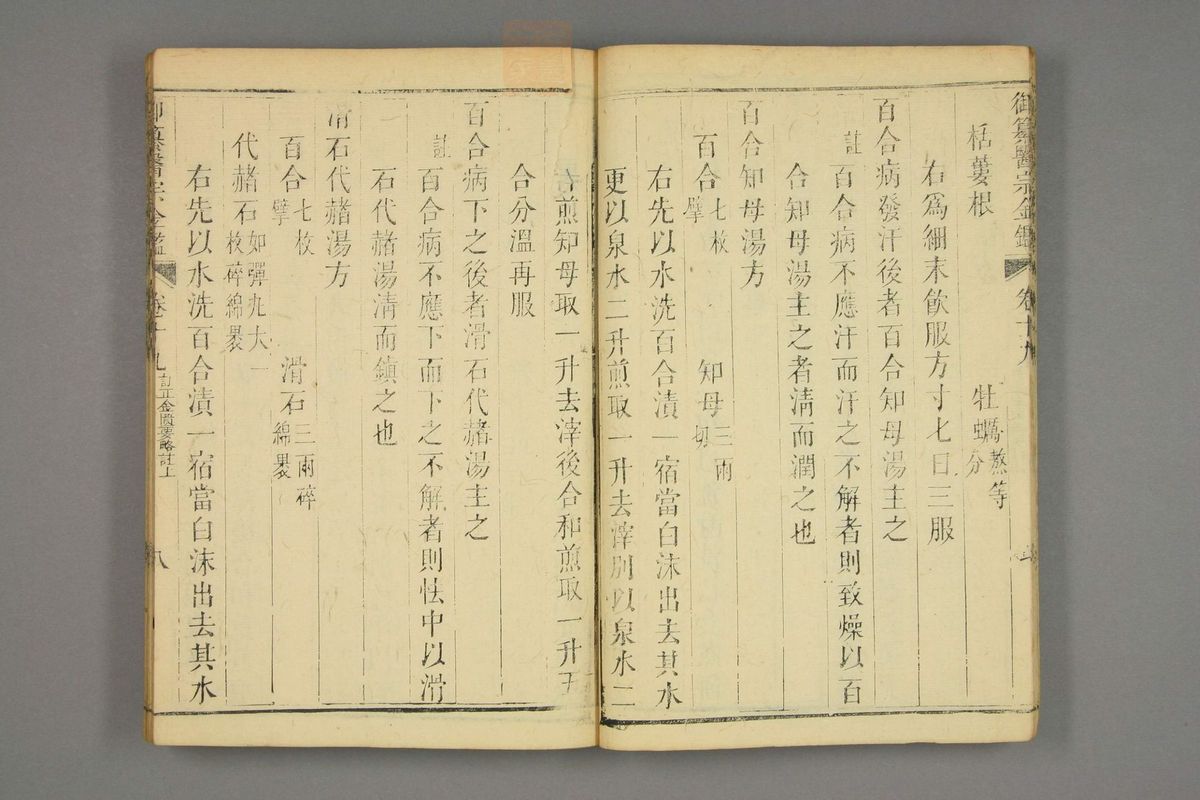 御纂醫宗金鑑 卷十九
栝蔞根 牡蠣熬等分
右爲細末飲服方寸匕日三服
百合病發汗後者百合知母湯主之
註 百合病不應汗而汗之不解者則致燥以百
合知母湯主之者淸而潤之也
百合知母湯方
百合七枚擘 知母三兩切
右先以水洗百合漬一宿當白沫出去其水
更以泉水二升煎取一升去滓別以泉水二
右煎知母取一升去滓後合和煎取一升五
合分溫再服
百合病下之後者滑石代赭湯主之
註 百合病不應下而下之不解者則怯中以滑
石代赭湯淸而鎮之也
滑石代赭湯方
百合七枚擘 滑石三兩碎綿裹
代赭石如彈丸大一枚碎綿裹
右先以水洗百合漬一宿當白沫出去其水
御纂醫宗金鑑 卷十九 訂正金匱要略註上 八